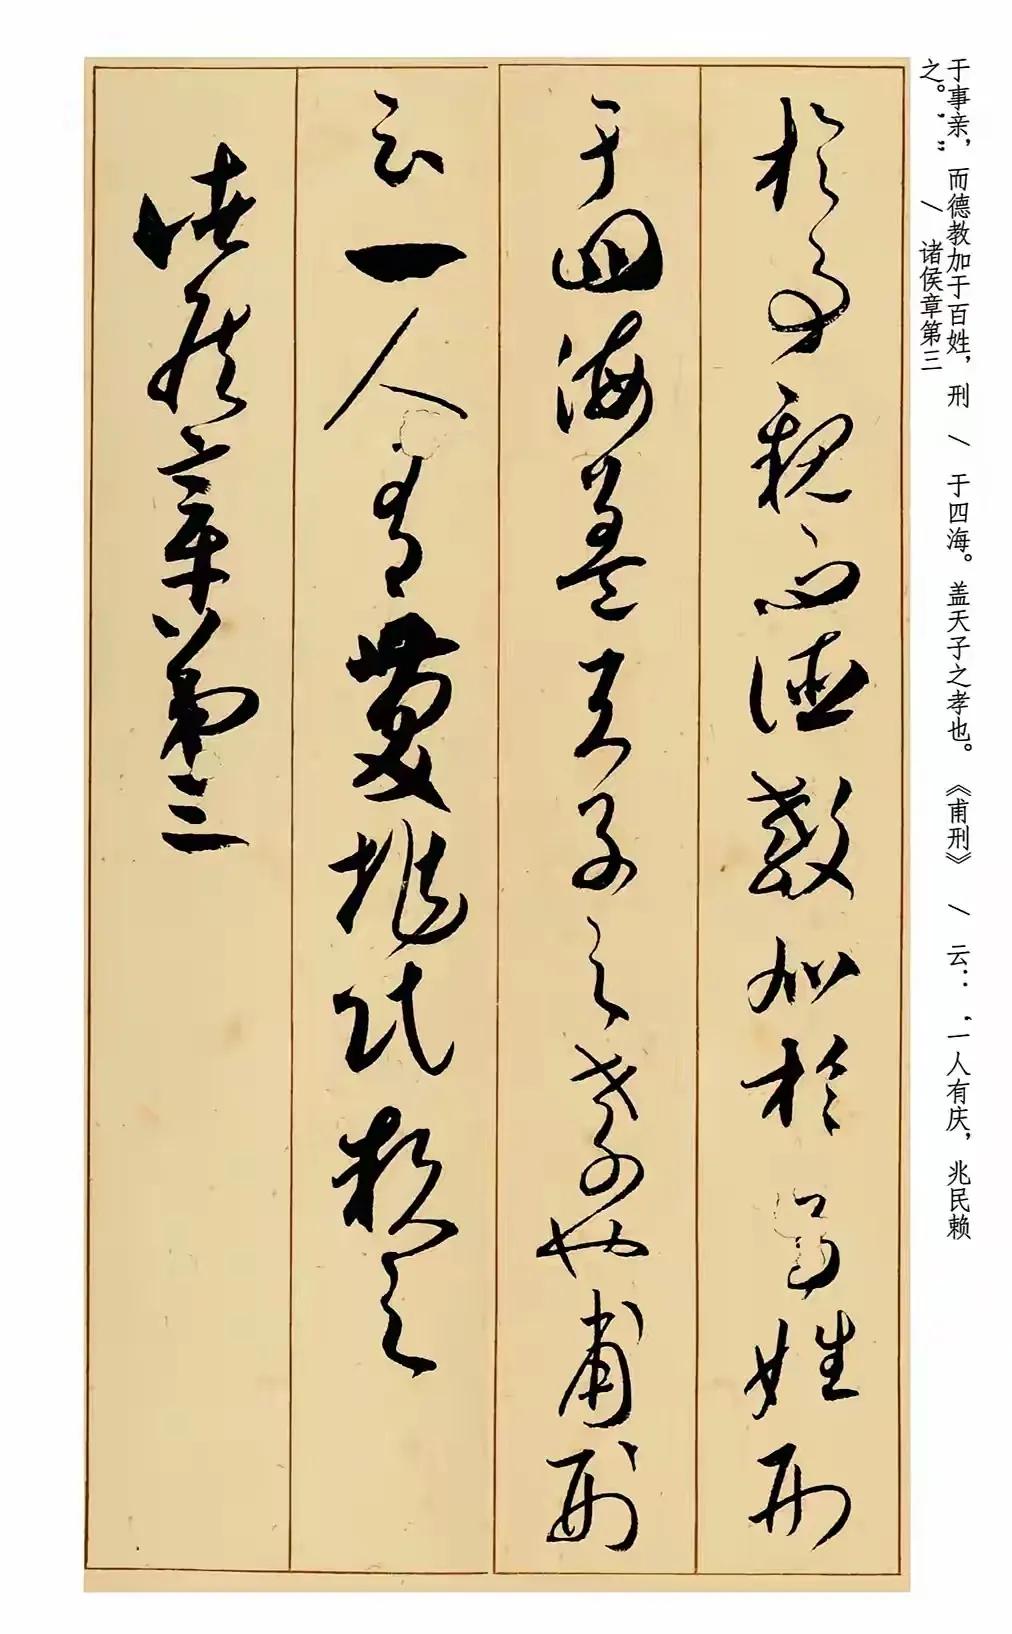 于事亲，而德教加于百姓，刑 \ 于四海。盖天子之孝也。《甫刑》 \ 云：“一人有庆，兆民赖
之。” \ 诸侯章第三
於事親而德教加於百姓刑
于四海蓋天子之孝也甫刑
云一人有慶兆民賴之
諸侯章第三